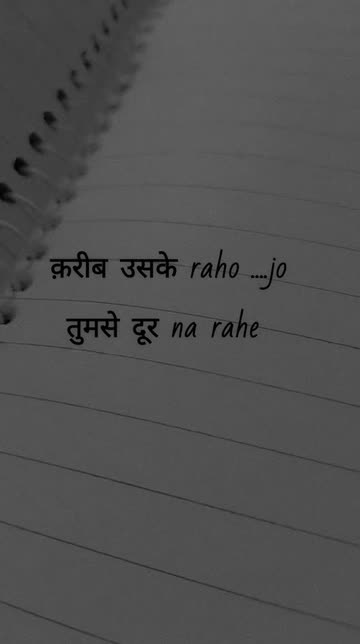 क़रीब उसके raho ....jo
तुमसे दूर na rahe